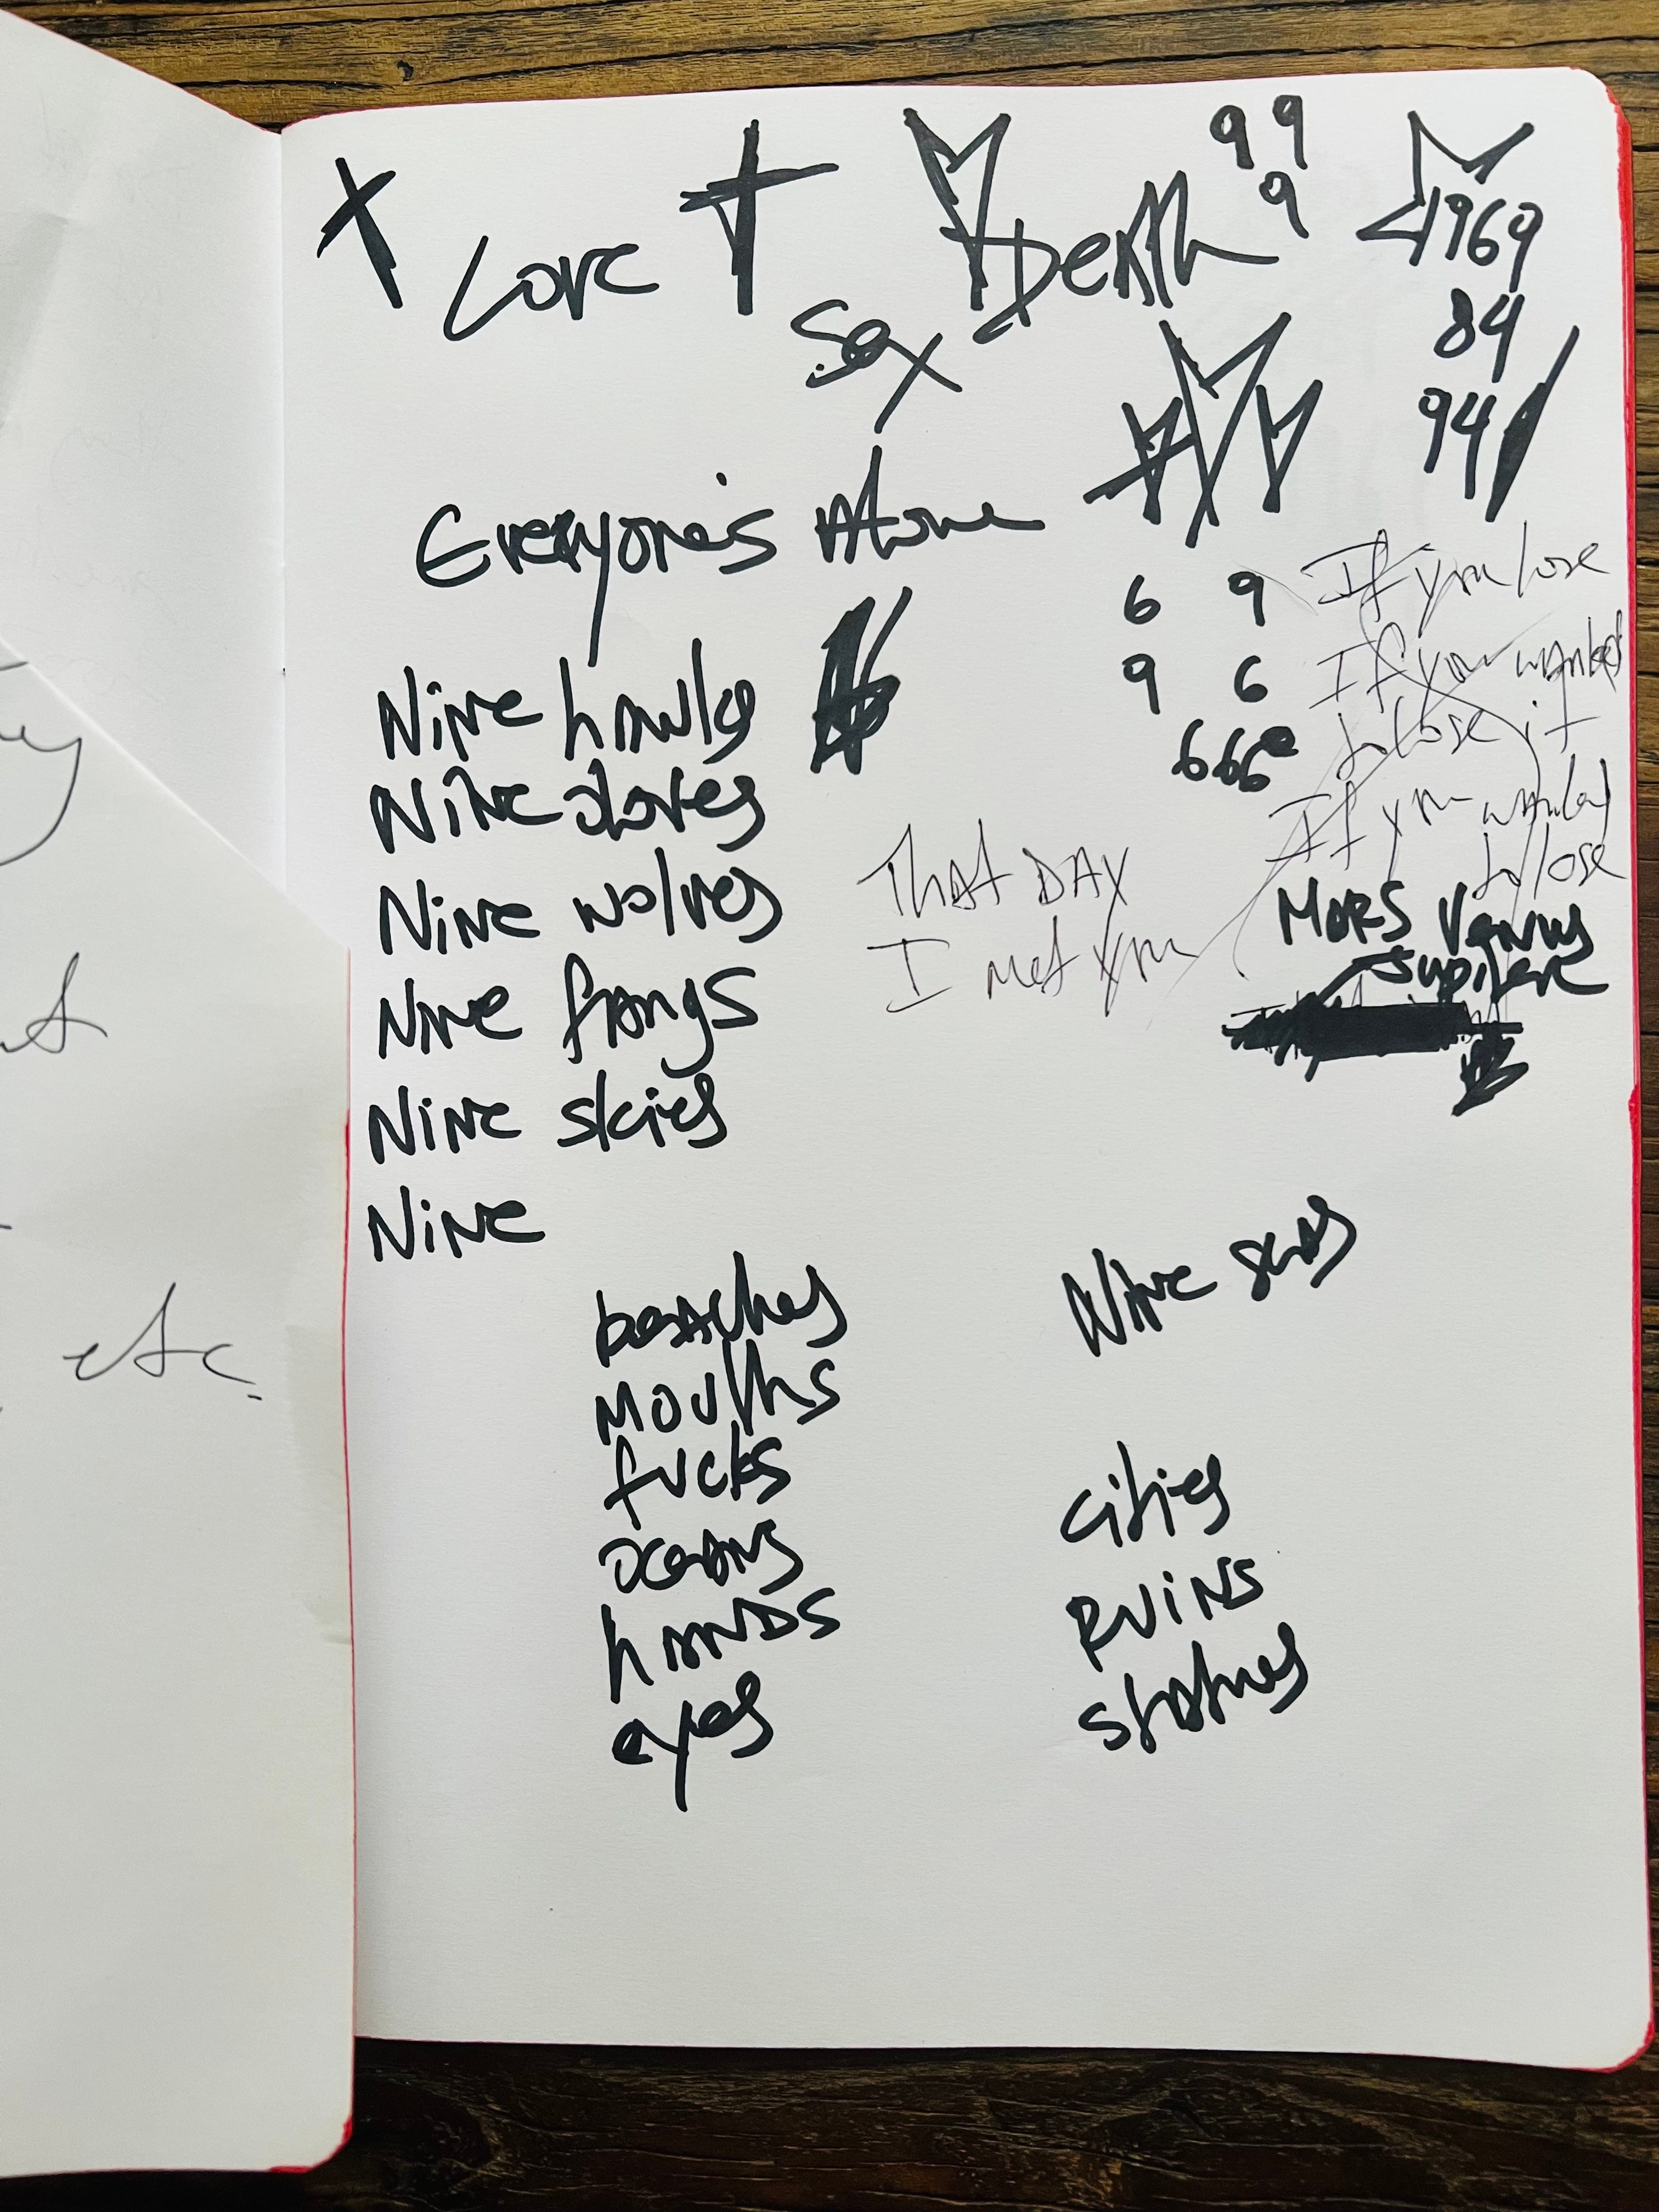 Love
Sex
Death
99
9
1969
84
94
Everyone's Alone
6 9
9 6
666
If you lose
If you wanted
to lose it
If you wanted
to lose
That DAY
I met you
MARS Venus
Jupiter
Nine hawks
Nine doves
Nine wolves
Nine fangs
Nine skies
Nine
beaches
Mouths
fucks
oceans
hANDS
eyes
Nine
cities
RUiNS
statues
etc.